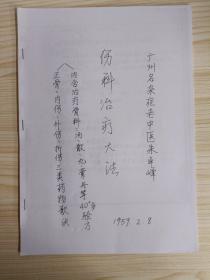 广州名宿老中医朱卓峰
伤科治疗大法
(内含治疗骨科,内散,丸膏丹等40多验方
正骨、内伤、外伤、折伤三类药物歌诀
1959 2 8